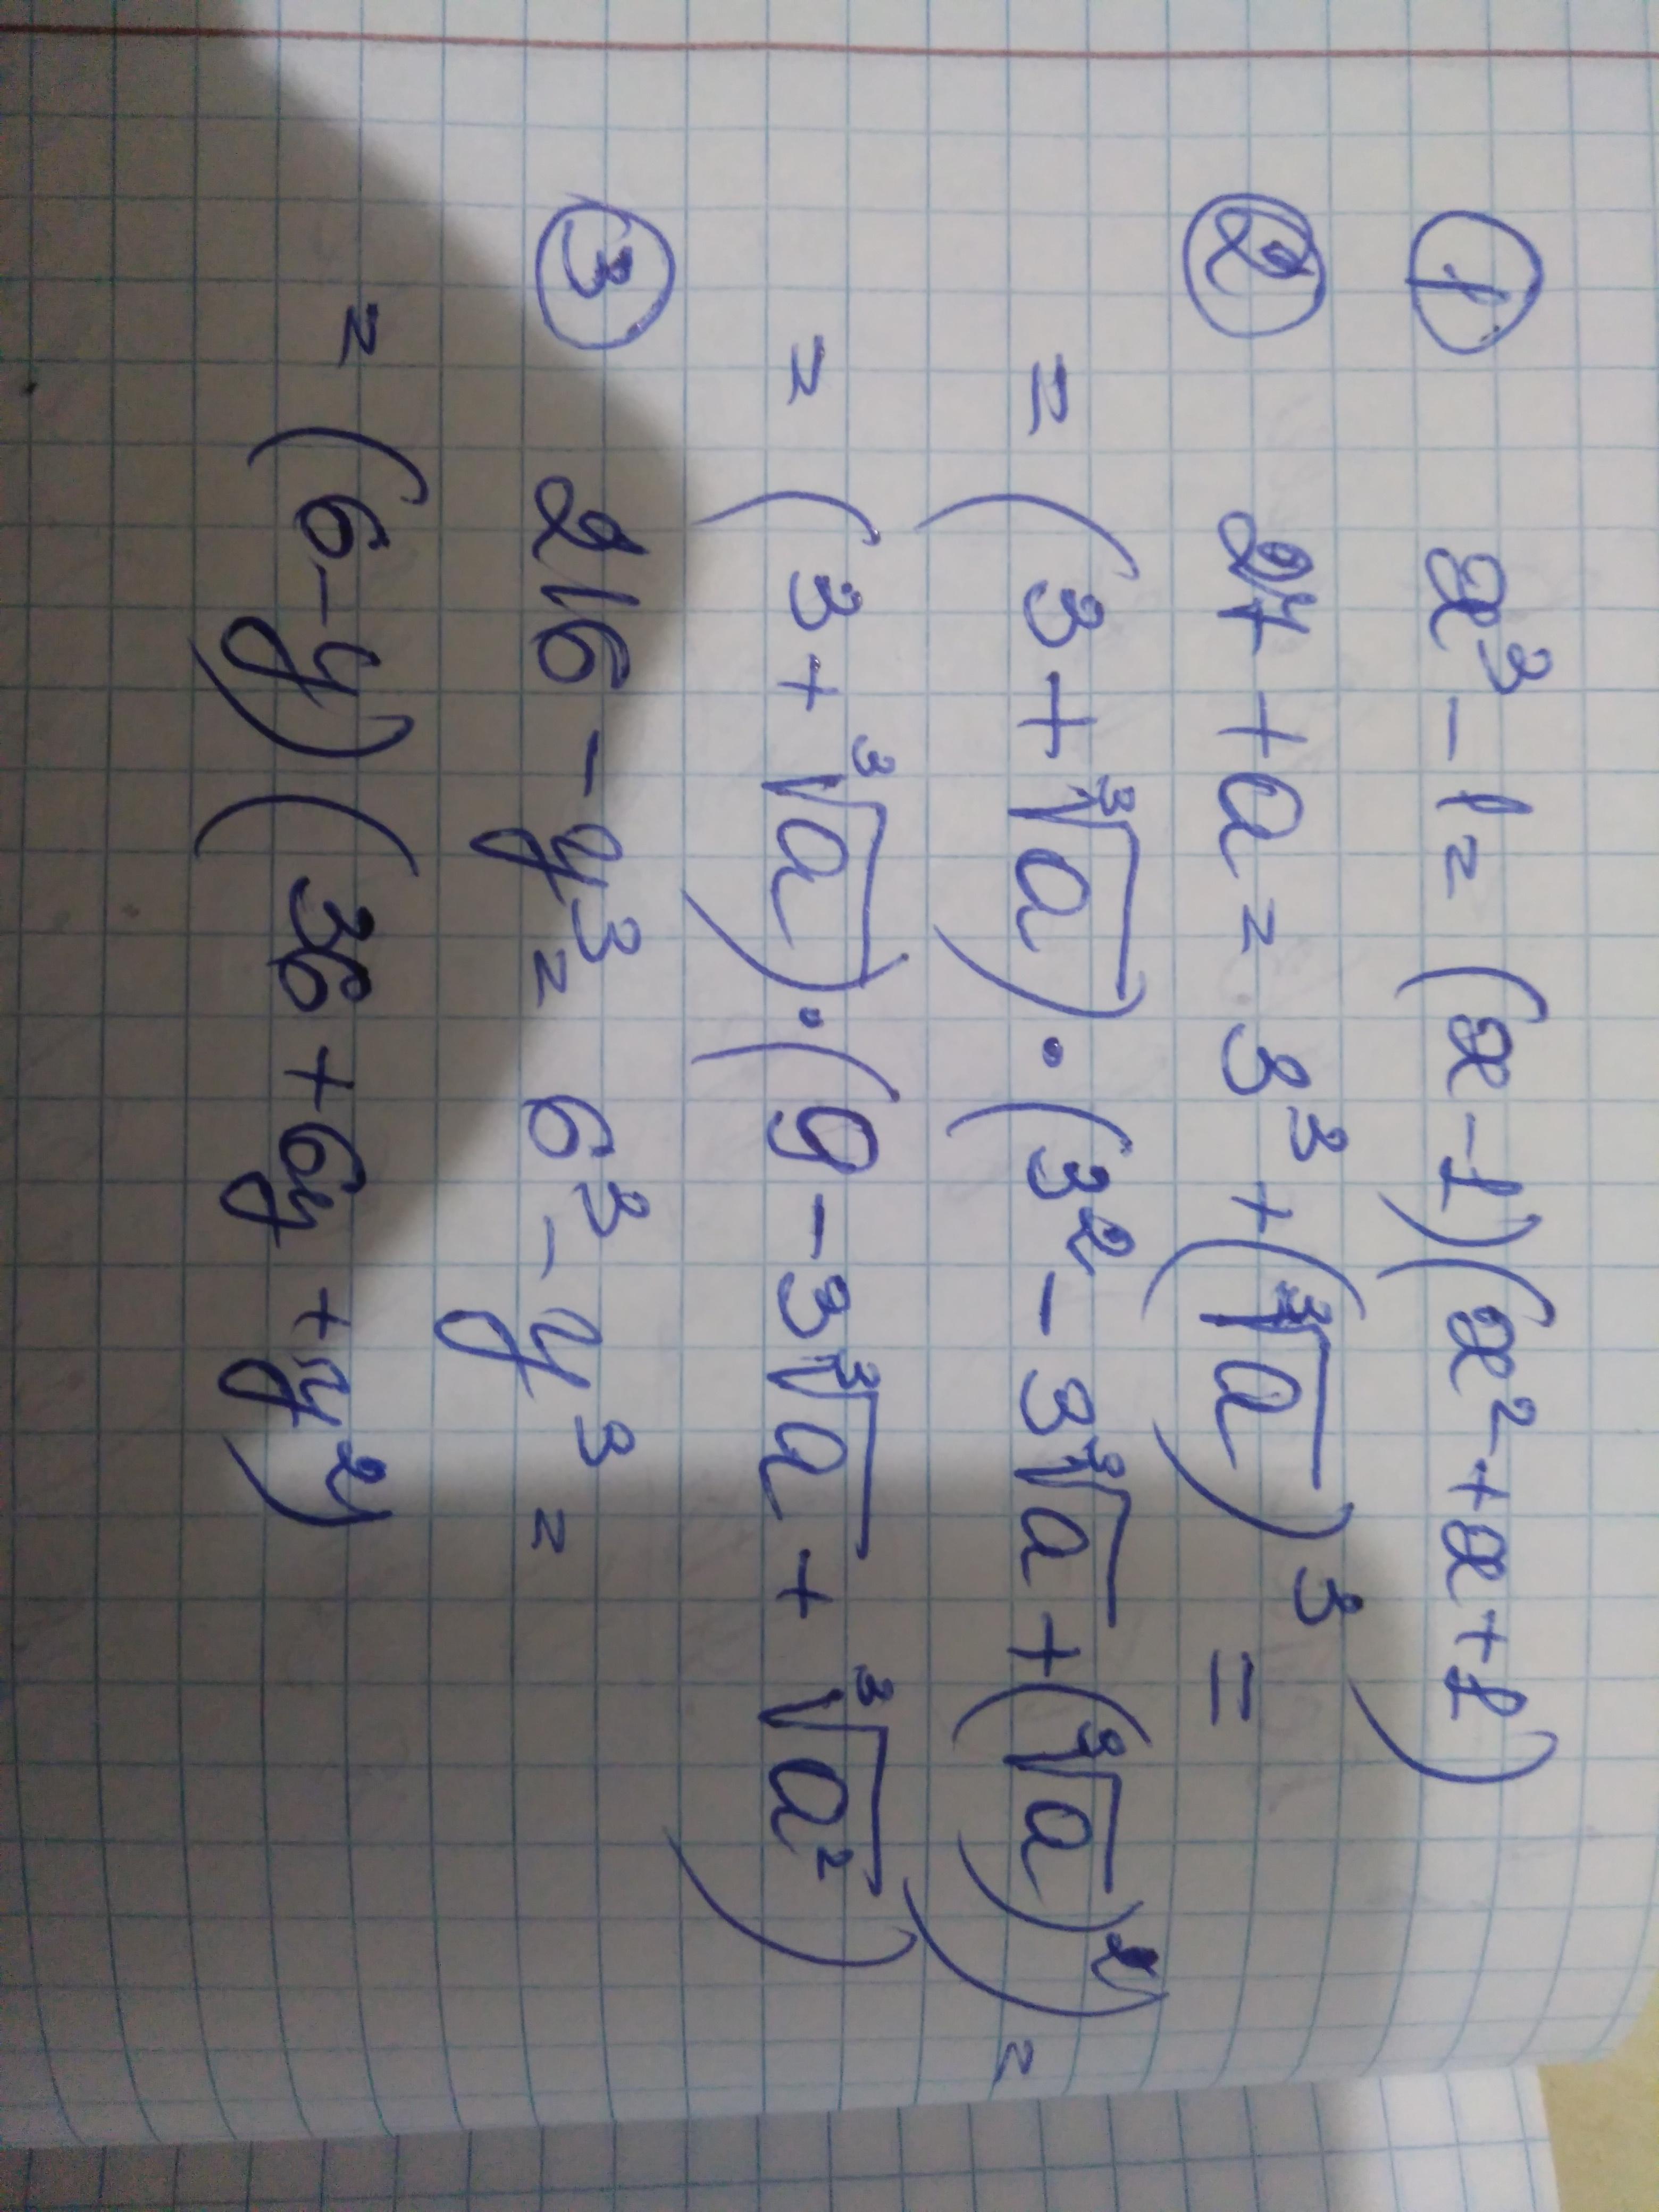 ① x³ - 1 = (x - 1)(x² + x + 1)
② 27 + a = 3³ + (∛a)³ =
= (3 + ∛a) · (3² - 3∛a + (∛a)²) =
= (3 + ∛a) · (9 - 3∛a + ∛a²)
③ 216 - y³ = 6³ - y³ =
= (6 - y)(36 + 6y + y²)